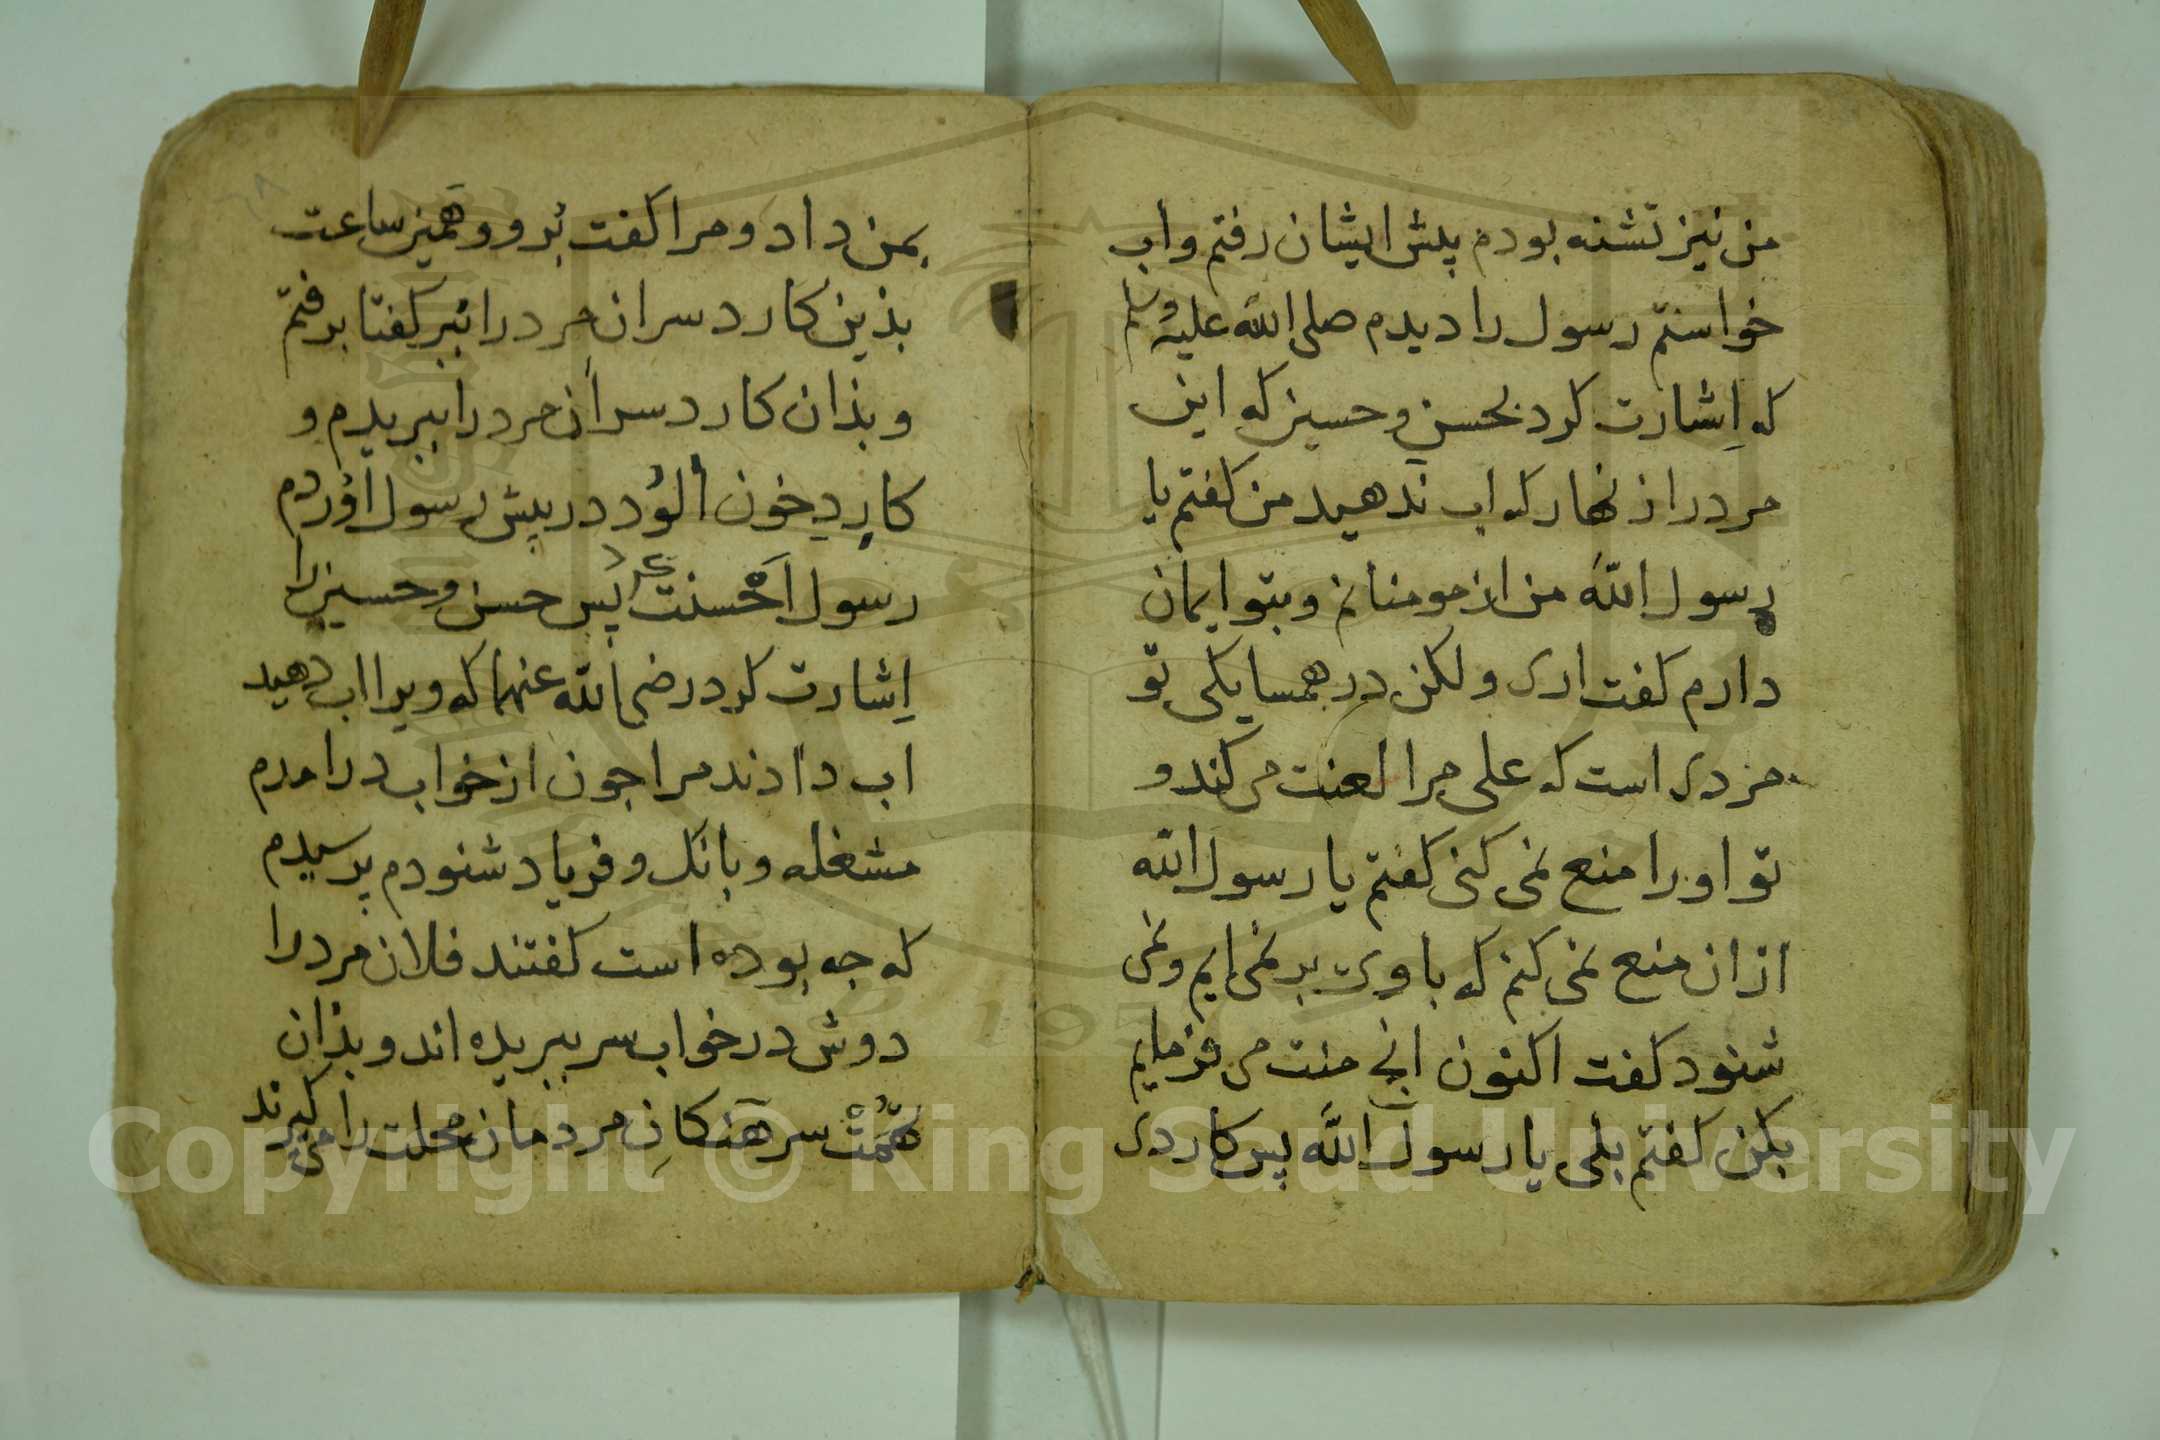 من نیز تشنه بودم پیش ایشان رفتم واب
خواستم رسول را دیدم صلی الله علیه وسلم
که اِشارت کرد بحسن و حسین که این
مرد را زنهار که اب ندهید من کفتم یا
رسول الله من از مومنانم و بتو ایمان
دارم کفت اری ولکن در همسایکی تو
مردی است که علی مرا لعنت می کند و
تو او را منع نمی کنی کفتم یا رسول الله
ازان منع نمی کنم که با وی بر نمی ایم ونمی
شنود کفت اکنون انج منت می فرمایم
بکن کفتم بلی یا رسول الله پس کاردی
بمن داد و مرا کفت بُرو و همین ساعت
بذین کارد سر ان مرد را ببر کفتا برفتم
و بذان کارد سر ان مرد را ببریدم و
کاردِ خون الُود در پیش رسول اوُردم
رسول اَحْسنت کرد پس حسن و حسین را
اِشارت کرد رضی الله عنهما که ویرا اب دهید
اب دادند مرا جون از خواب درامدم
مشغله و بانک و فریاد شنودم پرسیدم
که جه بوده است کفتند فلان مرد را
دوش در خواب سر ببریده اند و بذان
تُهْمَت سرهنکانِ مردمان محلت را می کیرند
Copyright © King Saud University